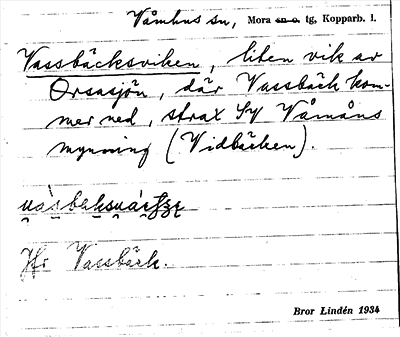 Våmhus sn, Mora sn o. tg, Kopparb. l.
Vassbäcksviken, liten vik av
Orsasjön, där Vassbäck kom-
mer ned, strax SV Våmåns
mynning (Vidbäcken).
Jfr Vassbäck.
Bror Lindén 1934